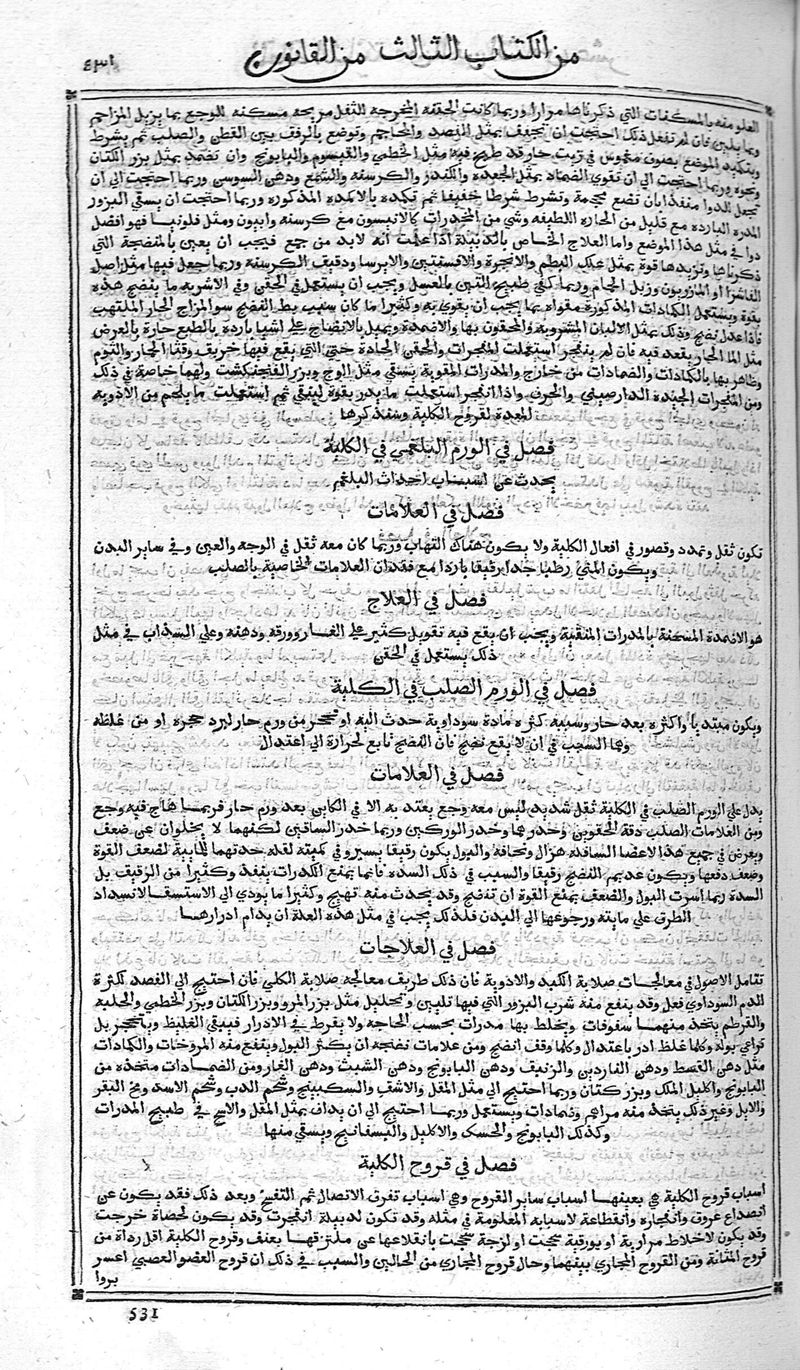 من الكتاب الثالث من القانون
٤٣١
العلو منه بالمسكنات التي ذكرناها مرارا وربما كانت الحقنه المخرجة للثقل مريحة مسكنه للوجع بما يزيل المزاحم
وبما يلين فان لم تفعل ذلك احتجت ان تخفف بمثل الفصد والمحاجم وتوضع بالرفق بين القطن والصلب ثم يشرط
ويتكيد الموضع بصوف مغموس في زيت حار قد طبخ فيه مثل الخطمي والقيسوم والبابونج وان تضمد بمثل بزر الكتان
ونحوه وربما احتجت الى ان تقوي الضماد بمثل الجعدة والكندر والكرسنه والشمع ودهن السوسن وربما احتجت الى ان
تجعل للدوا منفذا بان تضع محجمة وتشرط شرطا خفيفا ثم تكمده بالاكمدة المذكوره وربما احتجت ان يسقي البزور
المدره البارده مع قليل من الحاره اللطيفه وشي من المخدرات كالانيسون مع كرسنه وافيون ومثل فلونيا فهو افضل
دوا في مثل هذا الموضع واما العلاج الخاص بالدبيلة اذا علمت انه لابد من جمع فيجب ان يعين بالمنضجة التي
ذكرناها وتزيدها قوة بمثل علك البطم والانجرة والافسنتين والايرسا ودقيق الكرسنه وربما جعل فيها مثل اصل
الفاشرا او المازريون وزبل الحمام وربما كفي طبيخ التين بالعسل ويجب ان يستعمل في الحقن وفي الاشربه ما ينضج هذه
بقوة ويستعمل الكمادات المذكورة مقواه بما يجب ان يقوي به وكثيرا ما كان سبب بط النضج سو المزاج الحار الملتهب
فاذا عدل نضج وذلك بمثل الالبان المشروبة والمحقون بها والاضمدة وبميل بالانضاج على اشيا بارده بالطبع حارة بالعرض
مثل الما الحار يقعد فيه فان لم ينفجر استعملت المفجرات والحقن الحادة حتي التي يقع فيها خربق وقثا الحمار والثوم
وظاهر بها بالكمادات والضمادات من خارج والمدرات القوية يسقي مثل الوج وبزر الفنجنكشت ولهما خاصة في ذلك
ومن المفجرات الجيدة الدارصيني والحرف واذا انفجر استعملت ما يدر بقوة لينقي ثم استعملت ما يلحم من الادوية
المعدة لقروح الكلية وسنذكرها
فصل في الورم البلغمي في الكلية
يحدث عن اسباب احداث البلغم
فصل في العلامات
تكون ثقل وتمدد وقصور في افعال الكلية ولا يكون هناك التهاب وربما كان معه ثقل في الوجه والعين وفي ساير البدن
ويكون المني رطبا جدا رقيقا باردا مع فقدان العلامات الخاصية بالصلب
فصل في العلاج
هو الاضمدة المسخنة بالمدرات المنقية ويجب ان يقع فيه تعويل كثير على الغار وورقه ودهنه وعلي السذاب في مثل
ذلك يستعمل في الحقن
فصل في الورم الصلب في الكلية
ويكون مبتديا واكثره بعد حار وسببه كثرة مادة سوداوية حدثت اليه او تحجر من ورم حار لبرد حجره او من غلظه
وهما السبب في ان لا يقع نضج فان النضج تابع لحرارة الى اعتدال
فصل في العلامات
يدل علي الورم الصلب في الكلية ثقل شديد ليس معه وجع يعتد به الا في الكاين بعد ورم حار فربما هاج فيه وجع
ومن العلامات الصلب دقة الحقوين وخدرهما وخدر الوركين وربما خدر الساقين لكنهما لا يخلوان عن ضعف
ويعرض في جميع هذا لاعضا السافله هزال ونحافة والبول يكون رقيقا يسيرا في كميته لقله جذبهما للمائية لضعف القوة
وضعف دفعها ويكون عديم النضج رقيقا والسبب في ذلك السده فانها تمنع الكدرات بنفذ وكثيرا من الرقيق بل
السدة ربما اسرت البول والضعف يمنع القوة ان تنضج وقد يحدث منه تهيج وكثيرا ما يودي الى الاستسقا لانسداد
الطرق علي مايته ورجوعها الى البدن فلذلك يجب في مثل هذه العلة ان يدام ادرارهما
فصل في العلاجات
تقامل الاصول في معالجات صلابة الكبد والادوية فان ذلك طريف معالجة صلابة الكلي فان احتيج الى الفصد لكثرة
الدم السوداوي فعل وقد ينفع منه شرب البزور التي فيها تليين وتحليل مثل بزر المرو وبزر الكتان وبزر الخطمي والحلبة
والقرطم يتخذ منهما سفوفات ويخلط بها مدرات بحسب الحاجه ولا يفرط في الادرار فيبقي الغليظ ويتحجر بل
تراعي بوله وكلما غلظ ادر باعتدال وكلما وقف انضج ومن علامات نضجه ان يكثر البول وينفع منه المروخات والكمادات
مثل دهن القسط ودهن الناردين والزنبق ودهن البابونج ودهن الشبث ودهن الغار ومن الضمادات متخذه من
البابونج واكليل الملك وبزر كتان وربما احتيج الى مثل المقل والاشق والسكبينج وشحم الدب وشحم الاسد ومخ البقر
والايل وغير ذلك يتخذ منه مراهم وضمادات ويستعمل وربما احتيج الى ان يداف بمثل المقل والاشج في طبيخ المدرات
وكذلك البابونج والحسك والاكليل والبسفانج ويسقي منها
فصل في قروح الكلية
اسباب قروح الكلية هي بعينها اسباب ساير القروح وهي اسباب تفرق الاتصال ثم التقيح وبعد ذلك فقد يكون عن
انصداع عروق وانفجاره وانقطاعة لاسبابه المعلومة في مثله وقد تكون لدبيلة انفجرت وقد يكون لحصاة خرجت
وقد يكون لاخلاط مرارية او بورقية سحجت او لزجة سحجت بانقلاعها عن ملتزقها بعنف وقروح الكلية اقل رداة من
قروح المثانة ومن القروح المجاري بينهما وحال قروح المجاري من الحالين والسبب في ذلك ان قروح العضو العصبي اعسر
بروا
531